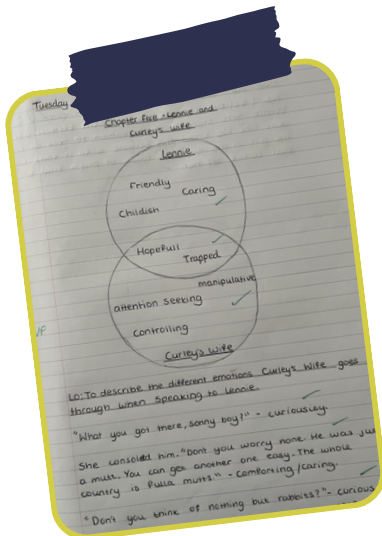 Tuesday
Chapter Five - Lennie and
Curley's Wife
Lennie
Friendly
Caring
Childish
Hopefull
Trapped
manipulative
attention seeking
controlling
Curley's Wife
LO: To describe the different emotions Curley's Wife goes
through when speaking to Lennie.
"What you got there, sonny boy?" - curiousity.
She consoled him. "Don't you worry none. He was jus
a mutt. You can get another one easy. The whole
country is fulla mutts" - comforting/caring.
"Don't you think of nothing but rabbits?" - curious